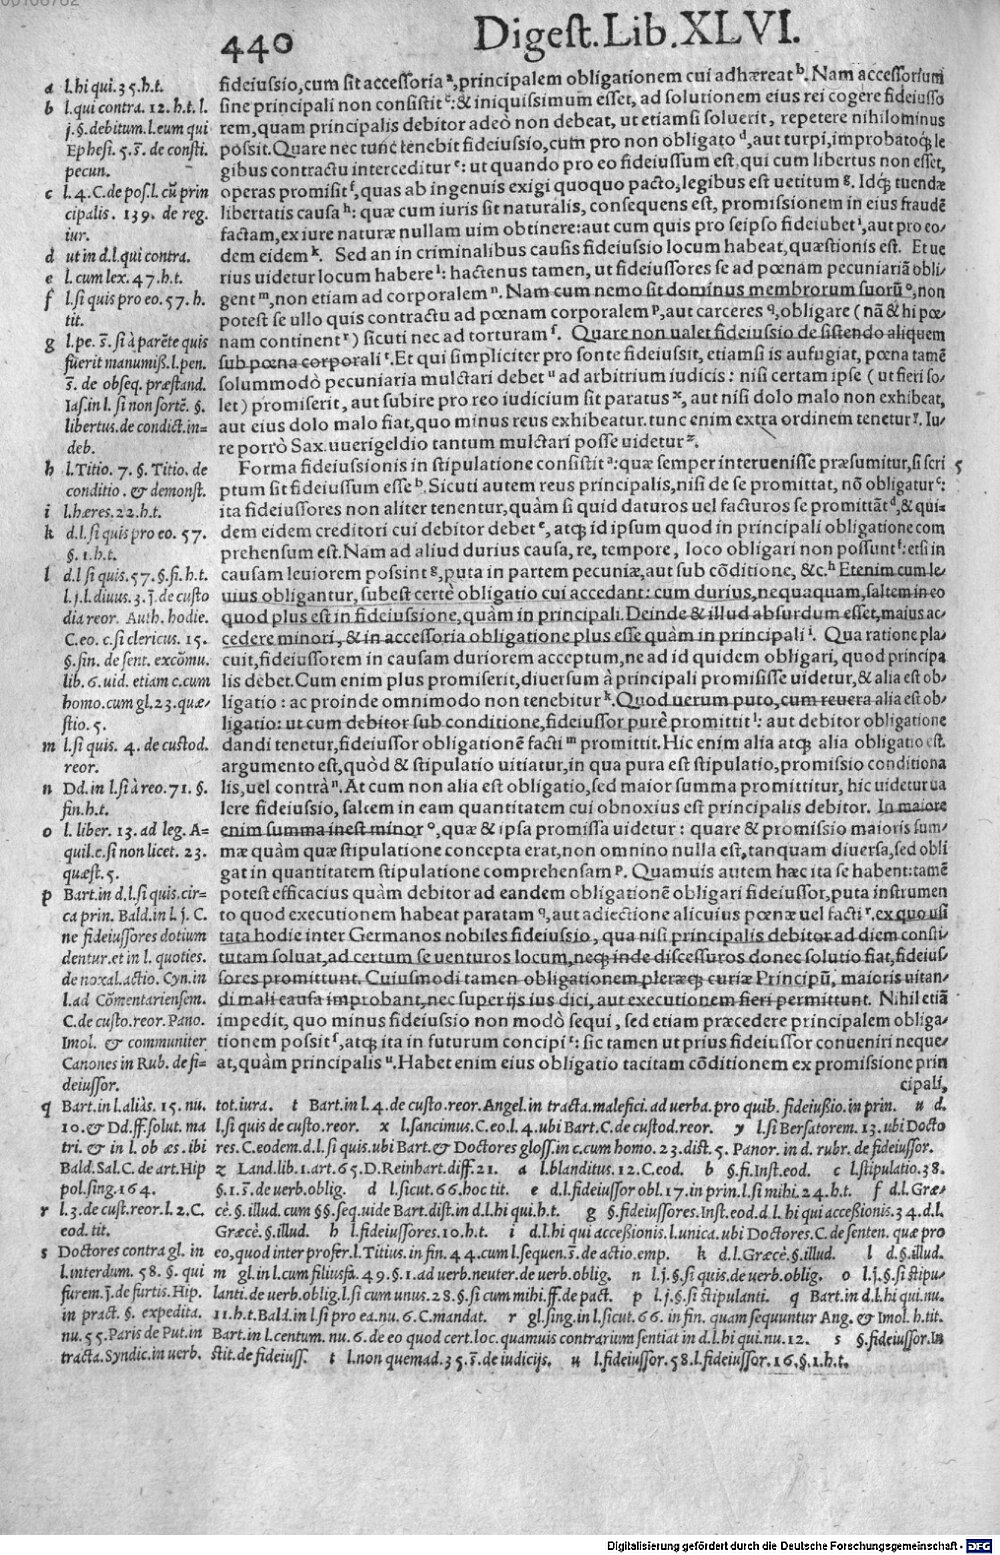 440
Digest. Lib. XLVI.
fideiussio, cum sit accessoria ᵃ, principalem obligationem cui adhæreat ᵇ. Nam accessorium
sine principali non consistit ᶜ: & iniquissimum esset, ad solutionem eius rei cogere fideiusso
rem, quam principalis debitor adeò non debeat, ut etiamsi soluerit, repetere nihilominus
possit. Quare nec tunc tenebit fideiussio, cum pro non obligato ᵈ, aut turpi, improbatoq́; le
gibus contractu interceditur ᵉ: ut quando pro eo fideiussum est, qui cum libertus non esset,
operas promisit ᶠ, quas ab ingenuis exigi quoquo pacto, legibus est uetitum ᵍ. Idq́; tuendæ
libertatis causa ʰ: quæ cum iuris sit naturalis, consequens est, promissionem in eius fraudē
factam, ex iure naturæ nullam uim obtinere: aut cum quis pro seipso fideiubet ⁱ, aut pro eo/
dem eidem ᵏ. Sed an in criminalibus causis fideiussio locum habeat, quæstionis est. Et ue
rius uidetur locum habere ˡ: hactenus tamen, ut fideiussores se ad pœnam pecuniariā obli/
gent ᵐ, non etiam ad corporalem ⁿ. Nam cum nemo sit dominus membrorum suorū ᵒ, non
potest se ullo quis contractu ad pœnam corporalem ᵖ, aut carceres ᑫ, obligare (nā & hi pœ/
nam continent ʳ) sicuti nec ad torturam ˢ. Quare non ualet fideiussio de sistendo aliquem
sub pœna corporali ᵗ. Et qui simpliciter pro sonte fideiussit, etiamsi is aufugiat, pœna tamē
solummodò pecuniaria mulctari debet ᵘ ad arbitrium iudicis: nisi certam ipse (ut fieri so/
let) promiserit, aut subire pro reo iudicium sit paratus ˣ, aut nisi dolo malo non exhibeat,
aut eius dolo malo fiat, quo minus reus exhibeatur. tunc enim extra ordinem tenetur ʸ. Iu/
re porrò Sax. uuerigeldio tantum mulctari posse uidetur ᶻ.
Forma fideiussionis in stipulatione consistit ᵃ: quæ semper interuenisse præsumitur, si scri
5
ptum sit fideiussum esse ᵇ. Sicuti autem reus principalis, nisi de se promittat, nō obligatur ᶜ:
ita fideiussores non aliter tenentur, quàm si quid daturos uel facturos se promittāt ᵈ, & qui-
dem eidem creditori cui debitor debet ᵉ, atq́; id ipsum quod in principali obligatione com
prehensum est. Nam ad aliud durius causa, re, tempore, loco obligari non possunt ᶠ: etsi in
causam leuiorem possint ᵍ, puta in partem pecuniæ, aut sub cōditione, &c. ʰ Etenim cum le/
uius obligantur, subest certè obligatio cui accedant: cum durius, nequaquam, saltem in eo
quod plus est in fideiussione, quàm in principali. Deinde & illud absurdum esset, maius ac/
cedere minori, & in accessoria obligatione plus esse quàm in principali ⁱ. Qua ratione pla/
cuit, fideiussorem in causam duriorem acceptum, ne ad id quidem obligari, quod principa
lis debet. Cum enim plus promiserit, diuersum à principali promisisse uidetur, & alia est ob/
ligatio: ac proinde omnimodo non tenebitur ᵏ. Quod uerum puto, cum reuera alia est ob/
ligatio: ut cum debitor sub conditione, fideiussor purè promittit ˡ: aut debitor obligatione
dandi tenetur, fideiussor obligationē facti ᵐ promittit. Hic enim alia atq́; alia obligatio est.
argumento est, quòd & stipulatio uitiatur, in qua pura est stipulatio, promissio conditiona
lis, uel contrà ⁿ. At cum non alia est obligatio, sed maior summa promittitur, hic uidetur ua
lere fideiussio, saltem in eam quantitatem cui obnoxius est principalis debitor. In maiore
enim summa inest minor ᵒ, quæ & ipsa promissa uidetur: quare & promissio maioris sum/
mæ quàm quæ stipulatione concepta erat, non omnino nulla est, tanquam diuersa, sed obli
gat in quantitatem stipulatione comprehensam ᵖ. Quamuis autem hæc ita se habent: tamē
potest efficacius quàm debitor ad eandem obligationē obligari fideiussor, puta instrumen
to quod executionem habeat paratam ᑫ, aut adiectione alicuius pœnæ uel facti ʳ. ex quo usi
tata hodie inter Germanos nobiles fideiussio, qua nisi principalis debitor ad diem consti/
tutam soluat, ad certum se uenturos locum, neq́; inde discessuros donec solutio fiat, fideius/
sores promittunt. Cuiusmodi tamen obligationem pleræq́; curiæ Principū, maioris uitan/
di mali causa improbant, nec super ijs ius dici, aut executionem fieri permittunt. Nihil etiā
impedit, quo minus fideiussio non modò sequi, sed etiam præcedere principalem obliga/
tionem possit ˢ, atq́; ita in futurum concipi ᵗ: sic tamen ut prius fideiussor conueniri neque/
at, quàm principalis ᵘ. Habet enim eius obligatio tacitam cōditionem ex promissione prin
cipali,
a l. hi qui. 35. h.t.
b l. qui contra. 12. h.t. l.
j. §. debitum. l. eum qui
Ephesi. 5. s̄. de consti.
pecun.
c l. 4. C. de pos. l. cū prin
cipalis. 139. de reg.
iur.
d ut in d.l. qui contra.
e l. cum lex. 47. h.t.
f l. si quis pro eo. 57. h.
tit.
g l. pe. s̄. si à parēte quis
fuerit manumiß. l. pen.
s̄. de obseq. præstand.
Ias. in l. si non sortē. §.
libertus. de condict. in-
deb.
h l. Titio. 7. §. Titio. de
conditio. & demonst.
i l. hæres. 22. h.t.
k d.l. si quis pro eo. 57.
§. 1. h.t.
l d.l si quis. 57. §. fi. h.t.
l. j. l. diuus. 3. j̄. de custo
dia reor. Auth. hodie.
C. eo. c. si clericus. 15.
§. fin. de sent. excōmu.
lib. 6. uid. etiam c. cum
homo. cum gl. 23. quæ-
stio. 5.
m l. si quis. 4. de custod.
reor.
n Dd. in l. si à reo. 71. §.
fin. h.t.
o l. liber. 13. ad leg. A-
quil. c. si non licet. 23.
quæst. 5.
p Bart. in d.l. si quis. cir-
ca prin. Bald. in l. j. C.
ne fideiussores dotium
dentur. et in l. quoties.
de noxal. actio. Cyn. in
l. ad Cōmentariensem.
C. de custo. reor. Pano.
Imol. & communiter
Canones in Rub. de fi-
deiussor.
q Bart. in l. aliàs. 15. nu.
10. & Dd. ff. solut. ma
tri. & in l. ob æs. ibi
Bald. Sal. C. de art. Hip
pol. sing. 164.
r l. 3. de cust. reor. l. 2. C.
eod. tit.
s Doctores contra gl. in
l. interdum. 58. §. qui
furem. j̄. de furtis. Hip.
in pract. §. expedita.
nu. 55. Paris de Put. in
tracta. Syndic. in uerb.
tot. iura. t Bart. in l. 4. de custo. reor. Angel. in tracta. malefici. ad uerba. pro quib. fideiußio. in prin. u d.
l. si quis de custo. reor. x l. sancimus. C. eo. l. 4. ubi Bart. C. de custod. reor. y l. si Bersatorem. 13. ubi Docto
res. C. eodem. d.l. si quis. ubi Bart. & Doctores gloss. in c. cum homo. 23. dist. 5. Panor. in d. rubr. de fideiussor.
z Land. lib. 1. art. 65. D. Reinhart. diff. 21. a l. blanditus. 12. C. eod. b §. fi. Inst. eod. c l. stipulatio. 38.
§. 1. s̄. de uerb. oblig. d l. sicut. 66. hoc tit. e d.l. fideiussor obl. 17. in prin. l. si mihi. 24. h.t. f d.l. Græ-
cè. §. illud. cum §§. seq. uide Bart. dist. in d.l. hi qui. h.t. g §. fideiussores. Inst. eod. d.l. hi qui acceßionis. 34. d.l.
Græcè. §. illud. h l. fideiussores. 10. h.t. i d.l. hi qui acceßionis. l. unica. ubi Doctores. C. de senten. quæ pro
eo, quod inter profer. l. Titius. in fin. 44. cum l. sequen. s̄. de actio. emp. k d.l. Græcè. §. illud. l d. §. illud.
m gl. in l. cum filiusfa. 49. §. 1. ad uerb. neuter. de uerb. oblig. n l. j. §. si quis. de uerb. oblig. o l. j. §. si stipu-
lanti. de uerb. oblig. l. si cum unus. 28. §. si cum mihi. ff. de pact. p l. j. §. si stipulanti. q Bart. in d.l. hi qui. nu.
11. h.t. Bald. in l. si pro ea. nu. 6. C. mandat. r gl. sing. in l. sicut. 66. in fin. quam sequuntur Ang. & Imol. h. tit.
Bart. in l. centum. nu. 6. de eo quod cert. loc. quamuis contrarium sentiat in d.l. hi qui. nu. 12. s §. fideiussor. In
stit. de fideiuss. t l. non quemad. 35. s̄. de iudicijs. u l. fideiussor. 58. l. fideiussor. 16. §. 1. h.t.
Digitalisierung gefördert durch die Deutsche Forschungsgemeinschaft - DFG